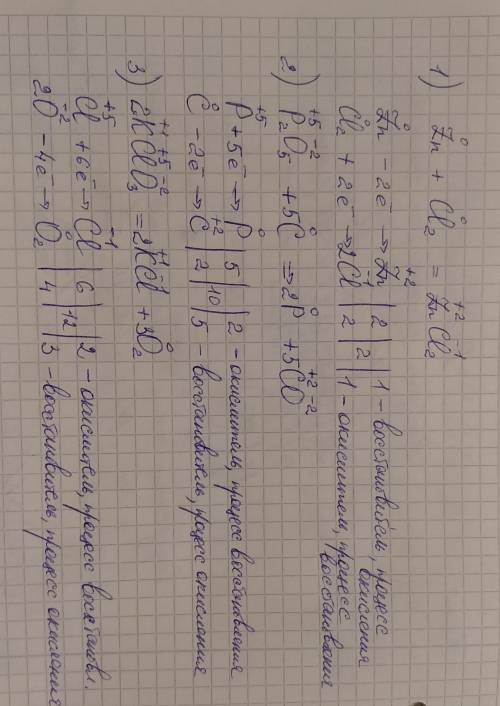 1) Zn⁰ + Cl₂⁰ = Zn⁺²Cl₂⁻¹
Zn⁰ - 2e⁻ → Zn⁺² | 2 | 1 - восстановитель, процесс окисления
Cl₂⁰ + 2e⁻ → 2Cl⁻¹ | 2 | 2 | 1 - окислитель, процесс восстановления
2) P₂⁺⁵O₅⁻² + 5C⁰ → 2P⁰ + 5C⁺²O⁻²
P⁺⁵ + 5e⁻ → P⁰ | 5 | 2 - окислитель, процесс восстановления
C⁰ - 2e⁻ → C⁺² | 2 | 10 | 5 - восстановитель, процесс окисления
3) 2K⁺¹Cl⁺⁵O₃⁻² = 2K⁺¹Cl⁻¹ + 3O₂⁰
Cl⁺⁵ + 6e⁻ → Cl⁻¹ | 6 | 2 - окислитель, процесс восстановл.
2O⁻² - 4e⁻ → O₂⁰ | 4 | 12 | 3 - восстановитель, процесс окисления